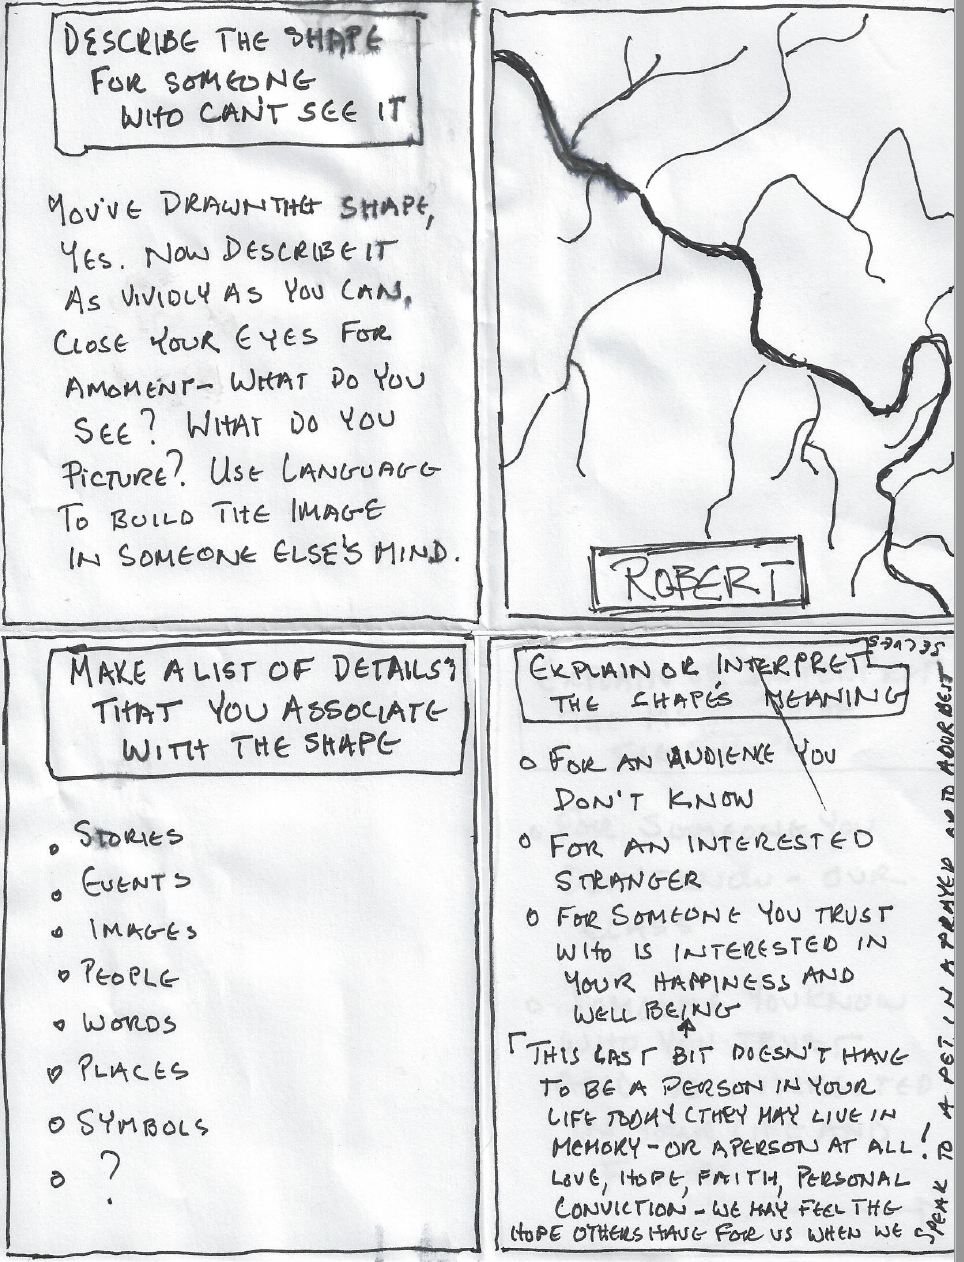 DESCRIBE THE SHAPE
FOR SOMEONE
WHO CAN'T SEE IT
YOU'VE DRAWN THE SHAPE,
YES. NOW DESCRIBE IT
AS VIVIDLY AS YOU CAN,
CLOSE YOUR EYES FOR
A MOMENT - WHAT DO YOU
SEE? WHAT DO YOU
PICTURE? USE LANGUAGE
TO BUILD THE IMAGE
IN SOMEONE ELSE'S MIND.
ROBERT
MAKE A LIST OF DETAILS
THAT YOU ASSOCIATE
WITH THE SHAPE
STORIES
EVENTS
IMAGES
PEOPLE
WORDS
PLACES
SYMBOLS
?
EXPLAIN OR INTERPRET
THE SHAPE'S MEANING
FOR AN AUDIENCE YOU
DON'T KNOW
FOR AN INTERESTED
STRANGER
FOR SOMEONE YOU TRUST
WHO IS INTERESTED IN
YOUR HAPPINESS AND
WELL BEING
THIS LAST BIT DOESN'T HAVE
TO BE A PERSON IN YOUR
LIFE TODAY (THEY MAY LIVE IN
MEMORY - OR A PERSON AT ALL!
LOVE, HOPE, FAITH, PERSONAL
CONVICTION - WE MAY FEEL THE
HOPE OTHERS HAVE FOR US WHEN WE
SPEAK TO A PET, IN A PRAYER, OR TO OUR BEST
SELVES